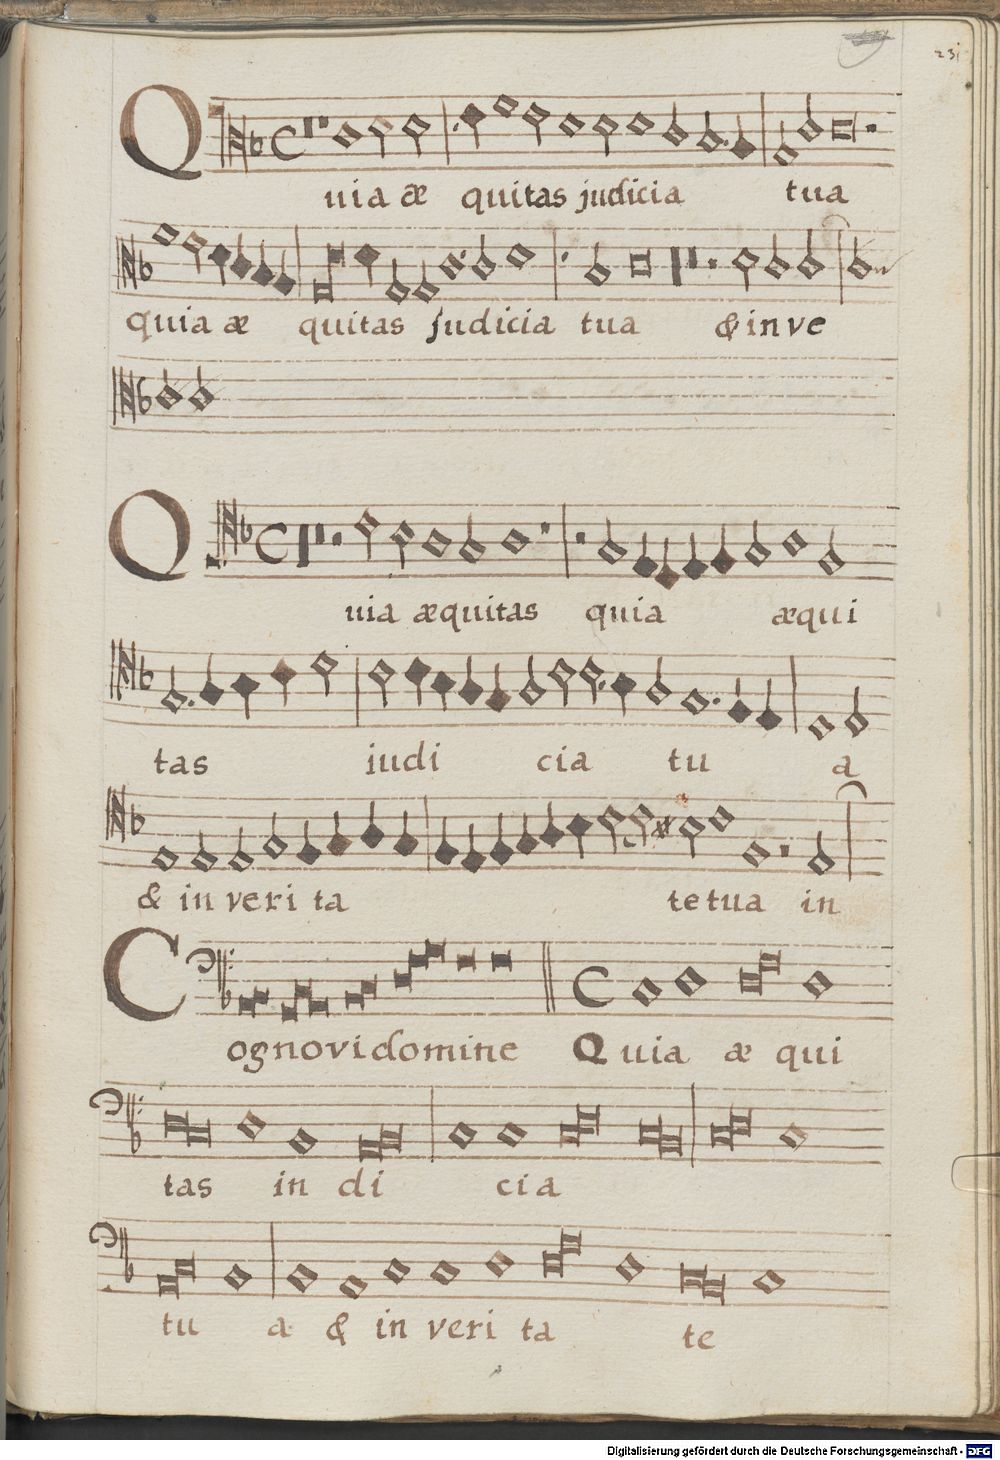 23
Quia æ quitas judicia tua
quia æ quitas judicia tua & in ve
Quia æquitas quia æqui
tas iudi cia tu a
& in veri ta te tua in
Cognovi domine Quia æ qui
tas in di cia
tu a & in veri ta te
Digitalisierung gefördert durch die Deutsche Forschungsgemeinschaft - DFG